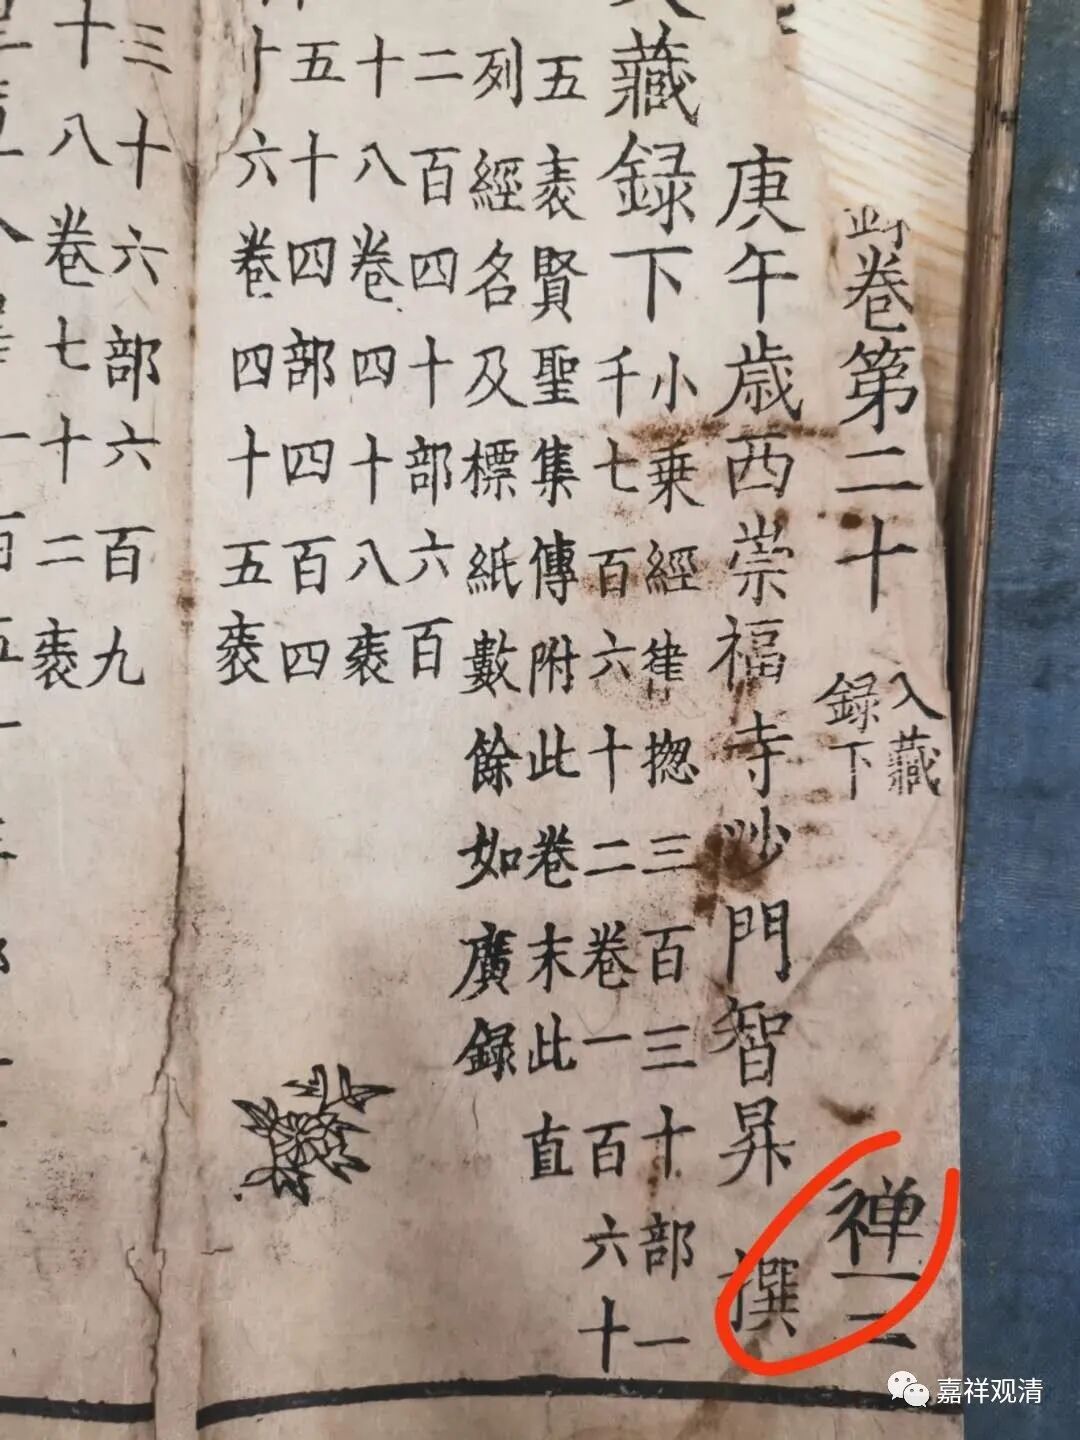 卷第二十
入藏
録下
禅二
庚午歳西崇福寺沙門智昇撰
藏録下
小乗經律揔三百三十部一
千七百六十二卷一百六十
五袠賢聖集傳附此卷末此直
列經名及標紙數餘如廣録
二百四十部六百
十八卷四十八袠
五十四部四百四
十六卷四十五袠
三十六部六百九
十八卷七十二袠
嘉祥观清